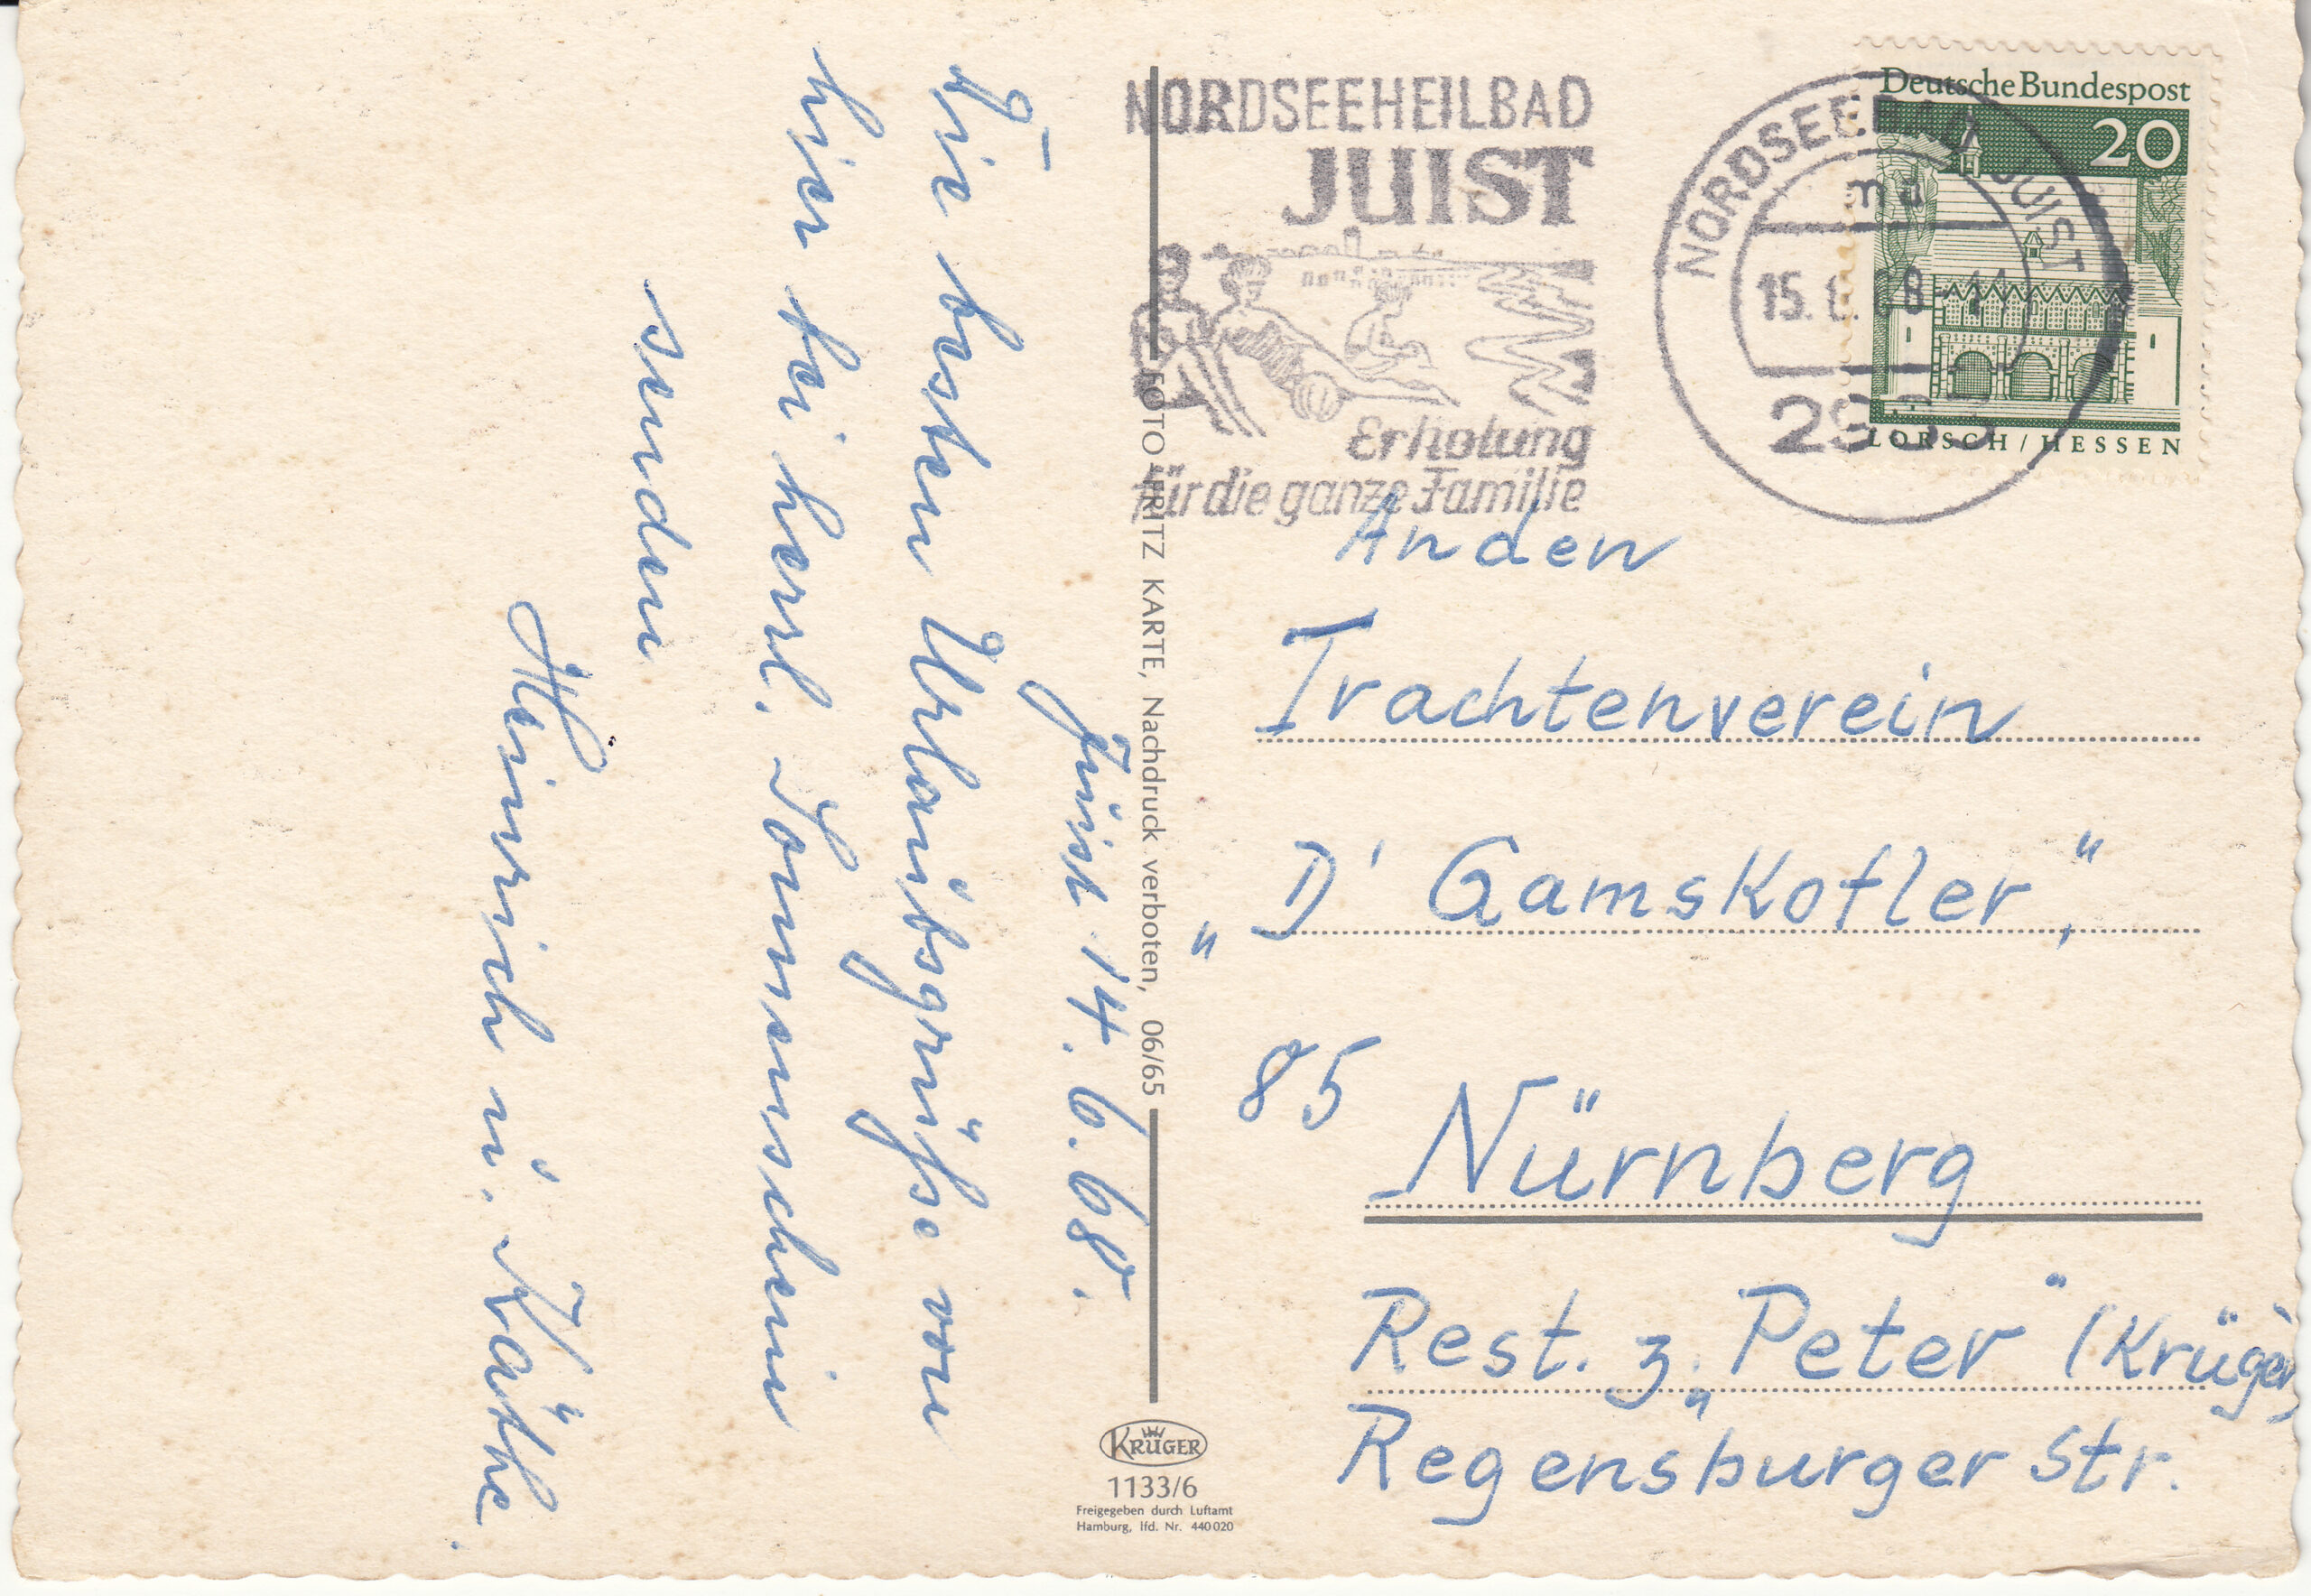 Juist 14.6.68.
Die besten Urlaubsgrüße von
hier bei herrl. Sonnenschein
senden
Heinrich u. Käthe.
FOTO FRITZ KARTE, Nachdruck verboten, 06/65
KRÜGER
1133/6
Freigegeben durch Luftamt
Hamburg, lfd. Nr. 440020
NORDSEEHEILBAD
JUIST
Erholung
für die ganze Familie
NORDSEEBAD JUIST
ma
15. 68-11
Deutsche Bundespost
20
LORSCH/HESSEN
An den
Trachtenverein
„D' Gamskofler,"
85 Nürnberg
Rest. z. „Peter" (Krüger)
Regensburger Str.